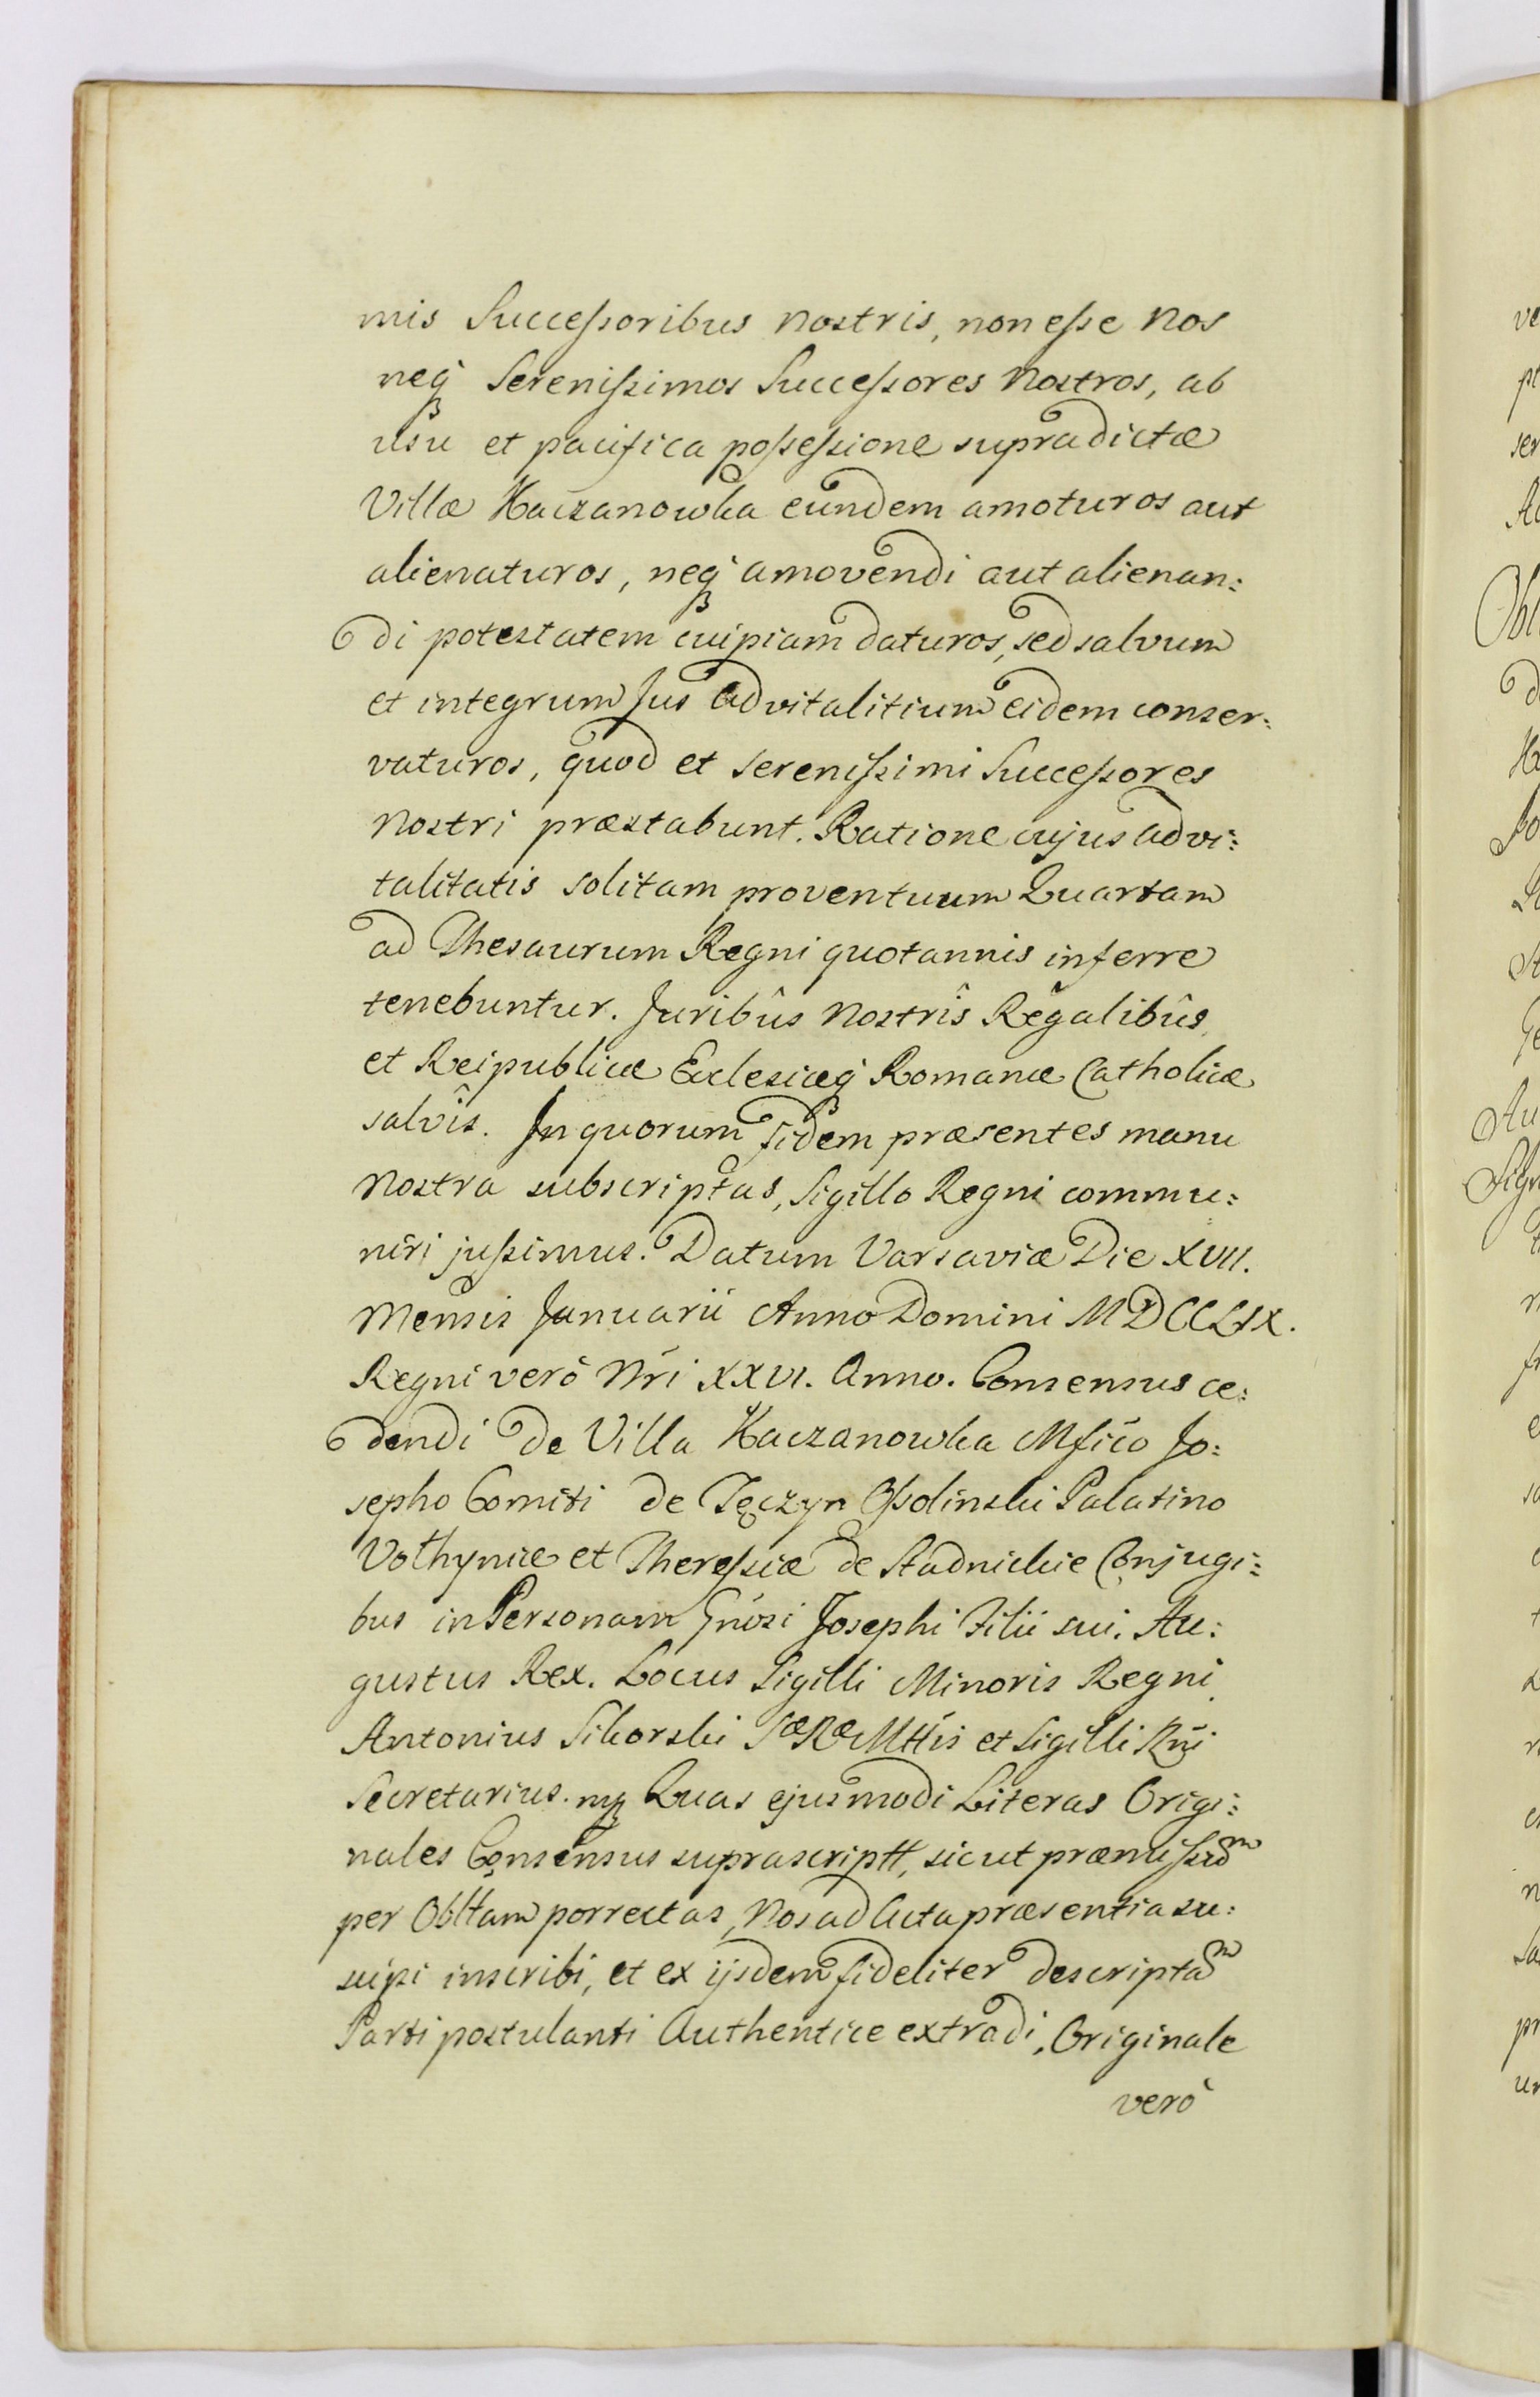 mis Successoribus nostris, non esse Nos
neq̀ꝫ Serenissimos Successores Nostros, ab
usu et pacifica possessione supradictæ
Villæ Kaczanowka eundem amoturos aut
alienaturos, neq̀ꝫ amovendi aut alienan:
di potestatem cuipiam daturos, sed salvum
et integrum Jus advitalitium eidem conser:
vaturos, quod et Serenissimi Successores
Nostri præstabunt. Ratione cujus advi:
talitatis solitam proventuum Quartam
ad Thesaurum Regni quotannis inferre
tenebuntur. Juribûs Nostrîs Regalibûs,
et Reipublicæ Ecclesiæq̀ꝫ Romanæ Catholicæ
salvîs. In quorum fidem præsentes manu
Nostra subscriptas, Sigillo Regni commu:
niri jussimus. Datum Varsaviæ Die XVII.
Mensis Januarii Anno Domini MDCCLIX.
Regni verò Nri XXVI. Anno. Consensus ce:
dendi de Villa Kaczanowka Mfico Jo:
sepho Comiti de Tęczyn Ossolinski Palatino
Volhyniæ et Theressiæ de Stadnickie Conjugi:
bus in Personam Gnosi Josephi Filii sui. Au:
gustus Rex. Locus Sigilli Minoris Regni
Antonius Sikorski SæRæMttis et Sigilli Rni
Secretarius. mp Quas ejusmodi Literas Origi:
nales Consensus suprascriptt, sicut præmissūm
per Oblttam porrectas, Nos ad Acta præsentia su:
scipi inscribi, et ex ijsdem fideliter descriptūm
Parti postulanti Authentice extradi, Originale
verò